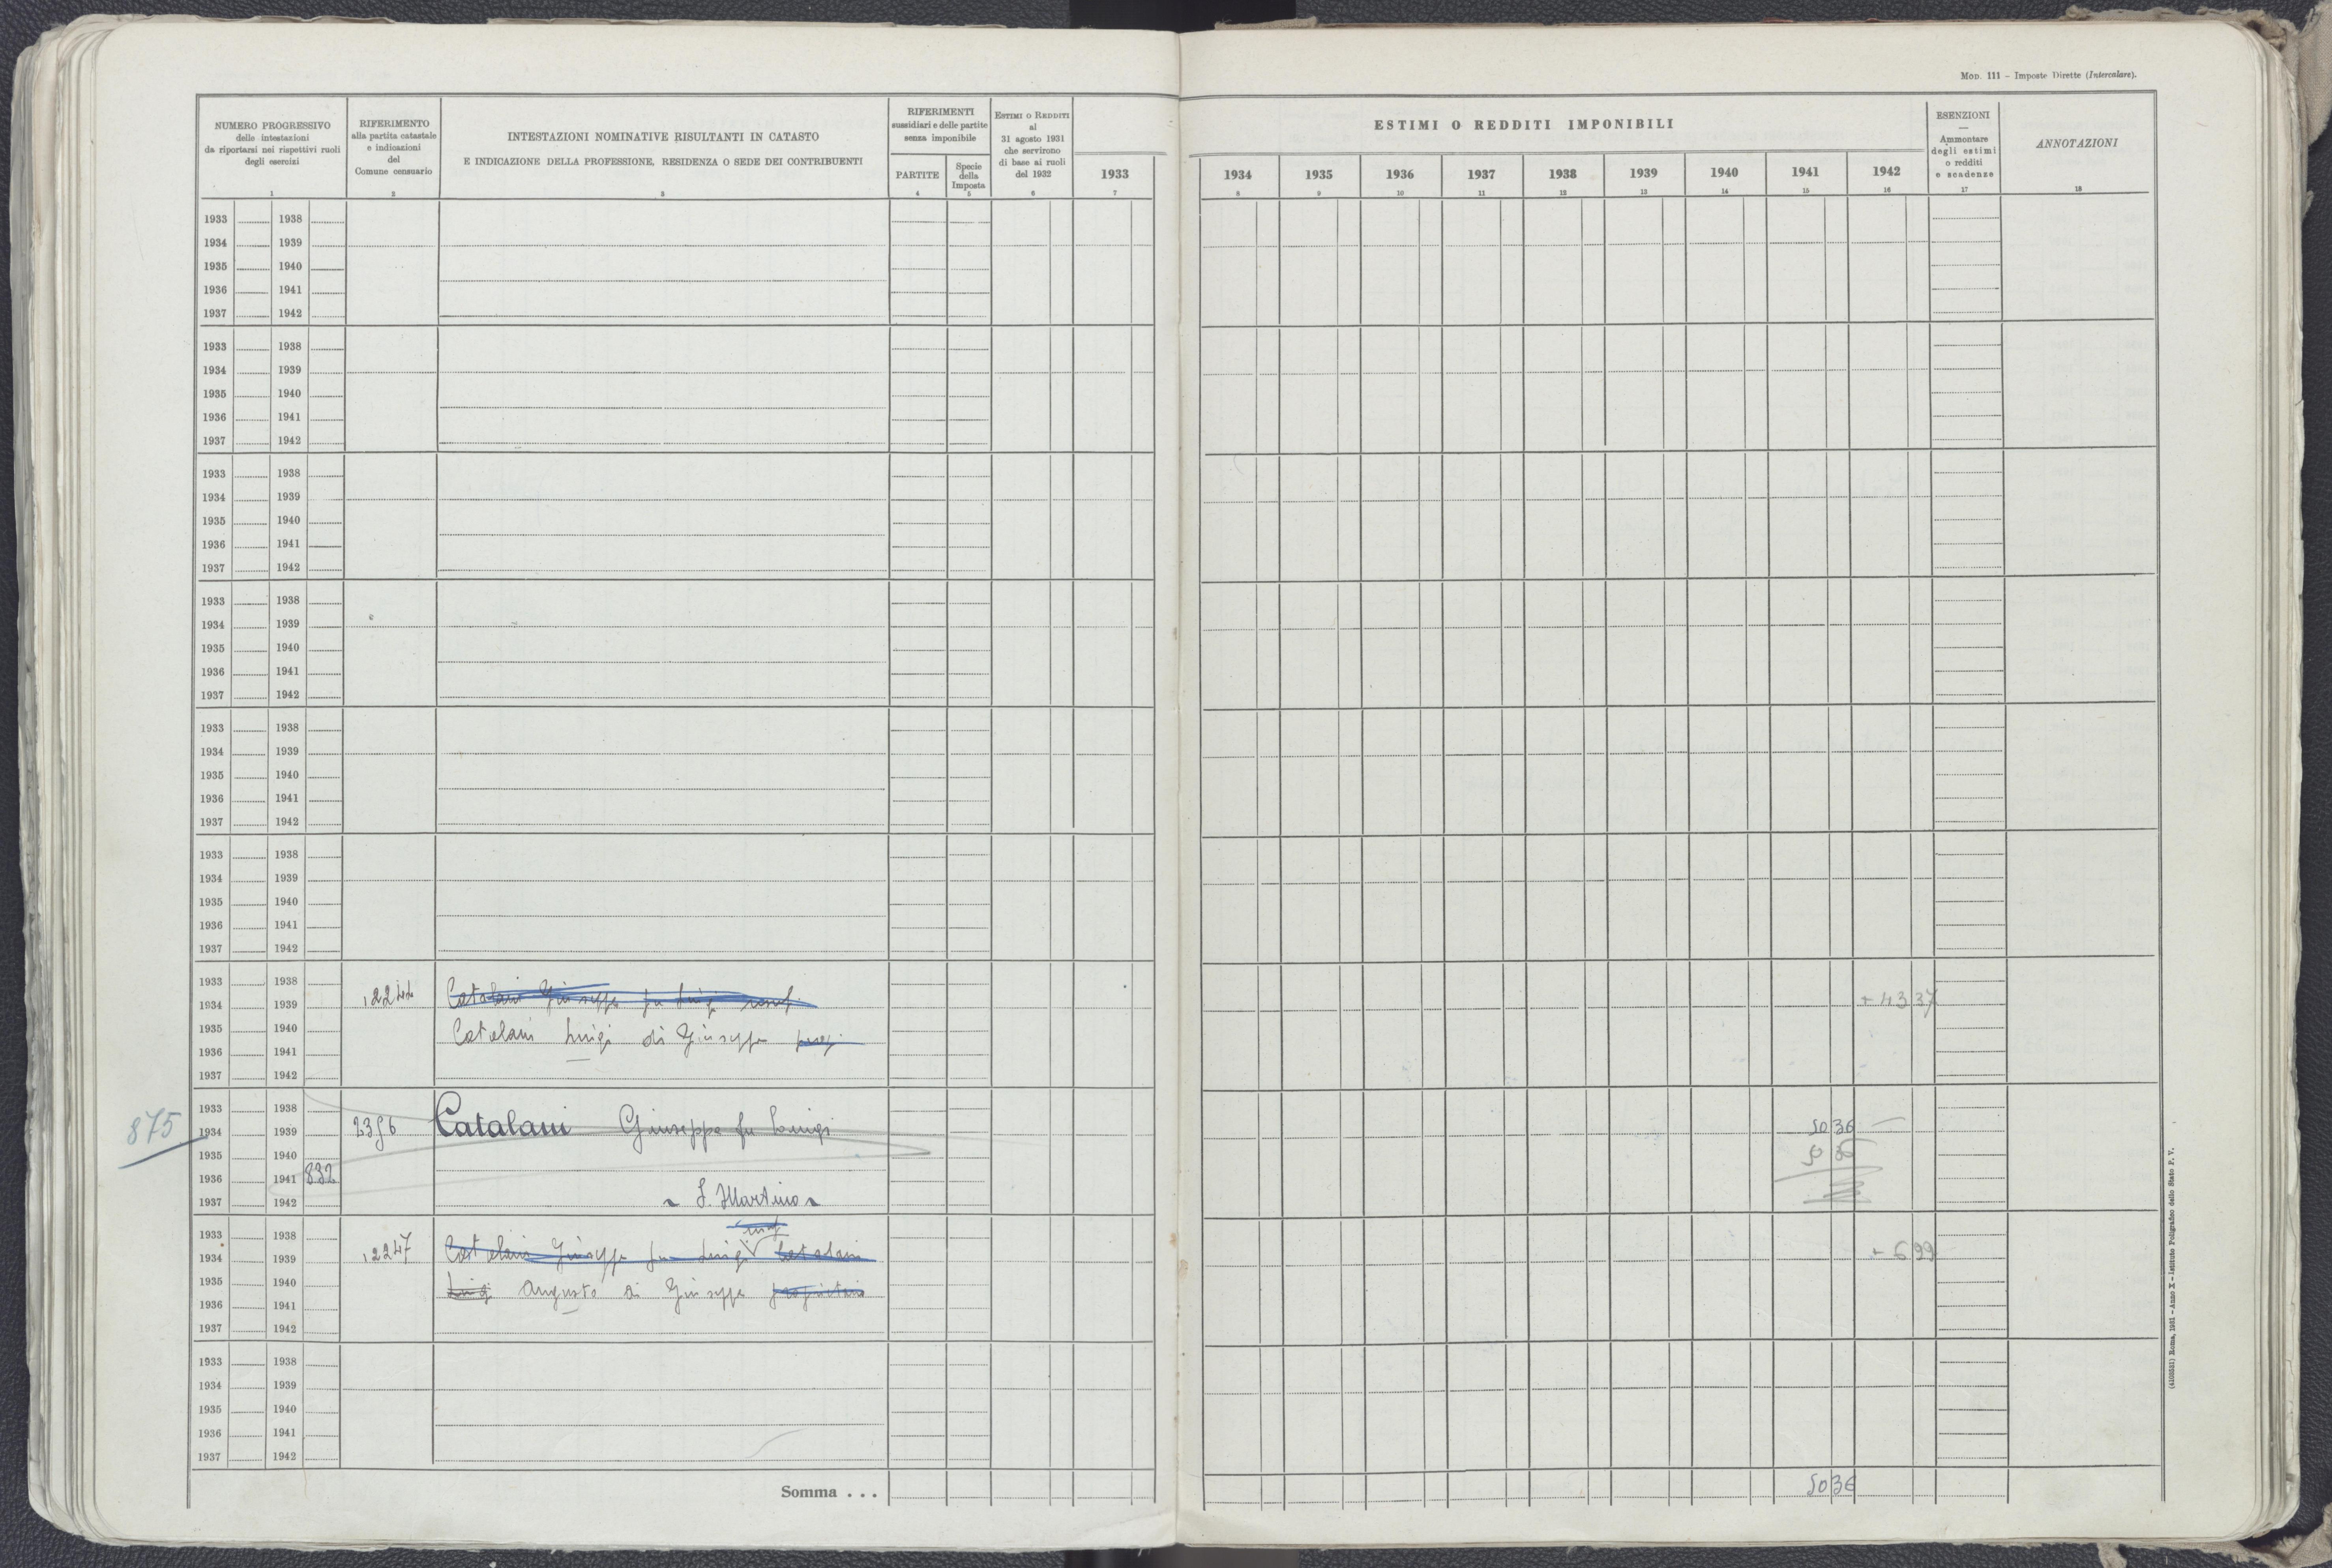 Mod. 111 – Imposte Dirette (Intercalare).
NUMERO PROGRESSIVO
delle intestazioni
da riportarsi nei rispettivi ruoli
degli esercizi
1
RIFERIMENTO
alla partita catastale
e indicazioni
del
Comune censuario
2
INTESTAZIONI NOMINATIVE RISULTANTI IN CATASTO
E INDICAZIONE DELLA PROFESSIONE, RESIDENZA O SEDE DEI CONTRIBUENTI
3
RIFERIMENTI
sussidiari e delle partite
senza imponibile
PARTITE
4
Specie
della
Imposta
5
Estimi o Redditi
al
31 agosto 1931
che servirono
di base ai ruoli
del 1932
6
1933
7
ESTIMI O REDDITI IMPONIBILI
1934 1935 1936 1937 1938 1939 1940 1941 1942
8 9 10 11 12 13 14 15 16
ESENZIONI
—
Ammontare
degli estimi
o redditi
e scadenze
17
ANNOTAZIONI
18
1933 1938
1934 1939
1935 1940
1936 1941
1937 1942
1933 1938
1934 1939
1935 1940
1936 1941
1937 1942
1933 1938
1934 1939
1935 1940
1936 1941
1937 1942
1933 1938
1934 1939
1935 1940
1936 1941
1937 1942
1933 1938
1934 1939
1935 1940
1936 1941
1937 1942
1933 1938
1934 1939
1935 1940
1936 1941
1937 1942
1933 1938
1934 1939 Catalani Giuseppe fu Luigi + 43 37
1935 1940 Catalani Luigi di Giuseppe
1936 1941
1937 1942
1933 1938
875 1934 1939 Catalani Giuseppe fu Luigi 50 36
1935 1940 50 36
1936 1941 832
1937 1942 S. Martino
1933 1938
1934 1939 2247 Catalani Giuseppe fu Luigi Catalani 6 99
1935 1940 Luigi Augusto di Giuseppe proprietario
1936 1941
1937 1942
1933 1938
1934 1939
1935 1940
1936 1941
1937 1942
Somma . . . 50 36
(410531) Roma, 1931 – Anno X – Istituto Poligrafico dello Stato P. V.